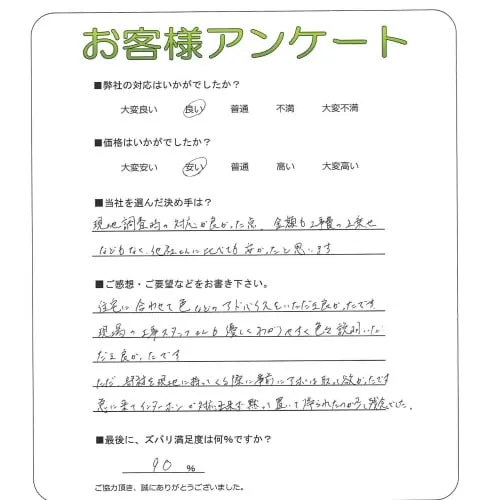 お客様アンケート
■弊社の対応はいかがでしたか?
大変良い 良い 普通 不満 大変不満
■価格はいかがでしたか?
大変安い 安い 普通 高い 大変高い
■当社を選んだ決め手は?
現地調査時の対応が良かった点、金額も工事費の上乗せ
などもなく、他社さんに比べても安かったと思います
■ご感想・ご要望などをお書き下さい。
住宅に合わせて色などのアドバイスをいただき良かったです
現場の工事スタッフさんも優しくわかりやすく色々説明いた
だき良かったです
ただ、部材を現地に持ってくる際に事前にアポは取って欲かったです
急に来てインターホンが対応出来ず黙って置いて帰られたのが少し残念でした。
■最後に、ズバリ満足度は何%ですか?
90 %
ご協力頂き、誠にありがとうございました。